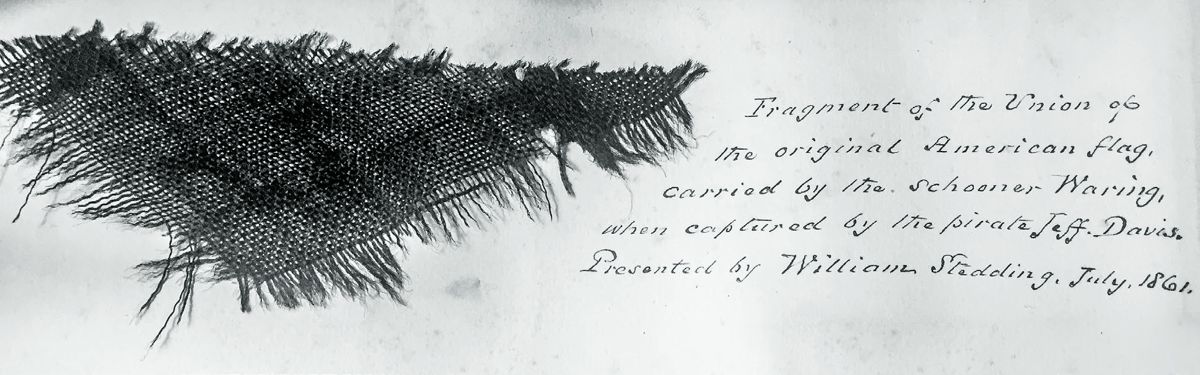 Fragment of the Union of
the original American flag,
carried by the schooner Waring,
when captured by the pirate Jeff. Davis.
Presented by William Stedding, July, 1861.